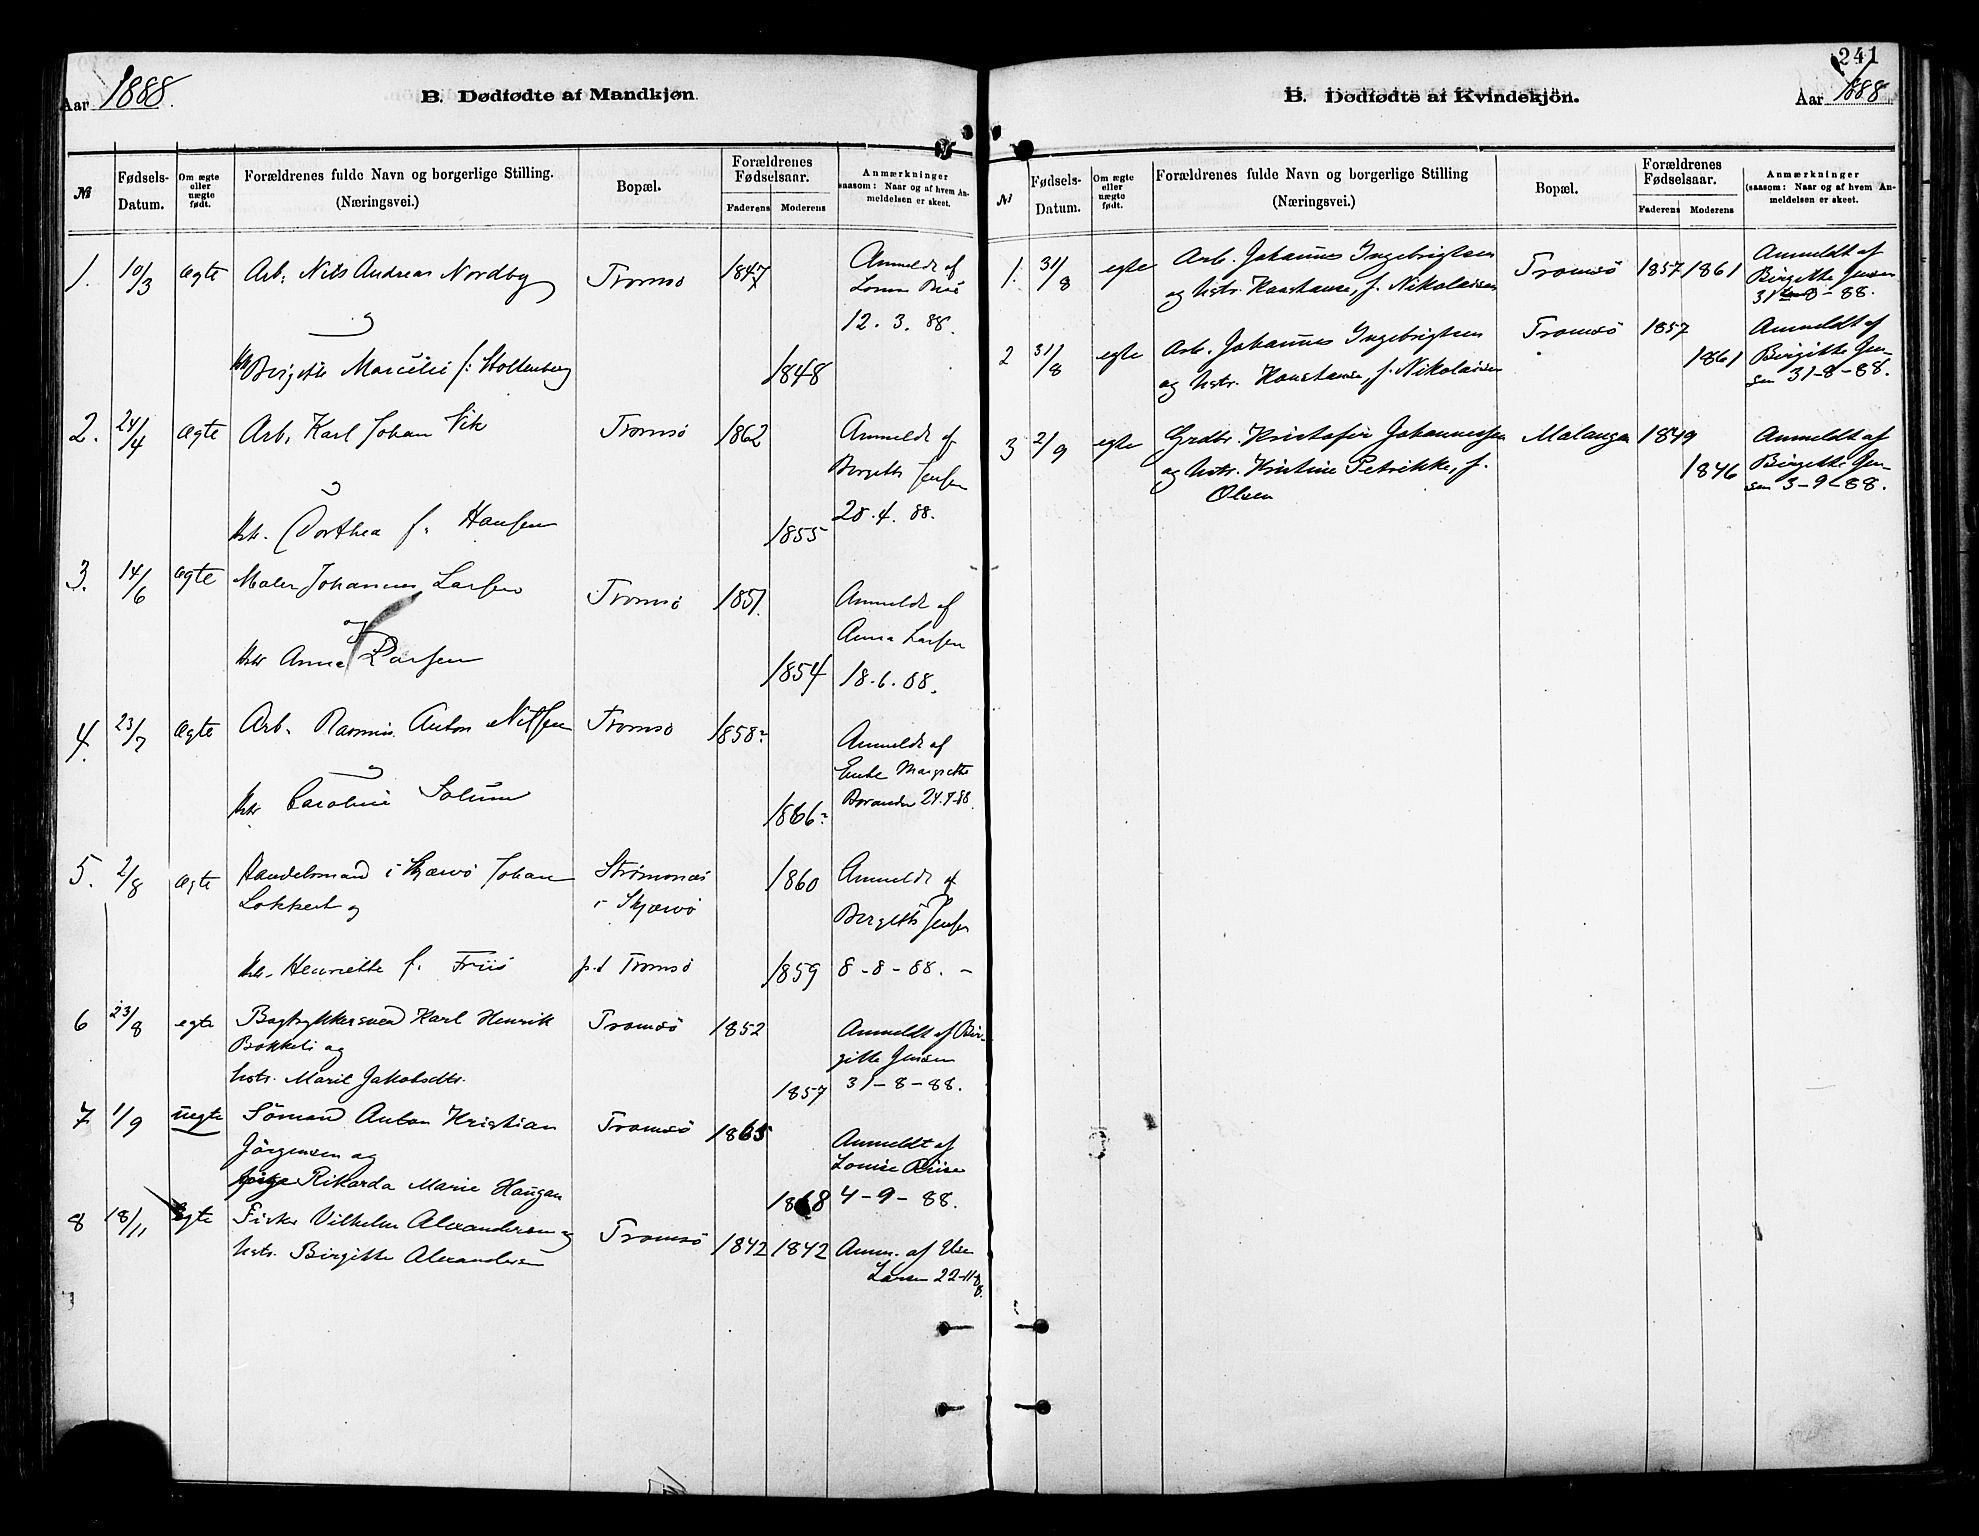 Aar 1888.
B. Dødfødte af Mandkjøn.
№
Fødsels-Datum.
Om ægte eller uægte født.
Forældrenes fulde Navn og borgerlige Stilling.
(Næringsvei.)
Bopæl.
Forældrenes Fødselsaar.
Faderens
Moderens
Anmærkninger
saasom: Naar og af hvem Anmeldelsen er skeet.
1. 10/3 Ægte Arb. Nils Andreas Nordby Tromsø 1847 Anmeldt af
og
12. 3. 88.
Birgitte f. Stoltenberg 1848
2. 24/4 Ægte Arb. Karl Johan Vik Tromsø 1862 Anmeldt af
Birgitte Jensen
28. 4. 88.
Hstr. Dorthea f. Hansen 1855
3. 14/6 Ægte Maler Johannes Larsen Tromsø 1851. Anmeldt af
og Anna Larsen
Hstr Anna Larsen 1854 18. 6. 88.
4. 23/7 Ægte Arb. Rasmus Anton Nilsen Tromsø 1858- Anmeldt af
og
Enke Margrethe
Hstr Caroline Solum 1866- 24.7.88.
5. 2/8 Ægte Handelsmand i Skjærvø Johan Strømsnæs 1860 Anmeldt af
Lokkert og i Skjærvø Birgitte Jensen
Hstr. Henriette f. Friis p.t Tromsø 1859 8-8-88.-
6 23/8 egte Bogtrykkersvend Karl Henrik Tromsø 1852 Anmeldt af Bir-
Bakkeli og gitte Jensen
hstr. Marit Jakobsdtr. 1857 31-8-88.
7 1/9 uegte Sømand Anton Kristian Tromsø 1865 Anmeldt af
Jørgensen og Louise
pige Rikarda Marie Haugan 1868 4-9-88.
8 18/11 Egte Fisker Vilhelm Alexandersen og Tromsø 1842 1842 Anm. af
hstr. Birgitte Alexandersen Larsen 22-11-88.
241
B. Dødfødte af Kvindekjön.
Aar 1888
№
Fødsels-Datum.
Om ægte eller uægte født.
Forældrenes fulde Navn og borgerlige Stilling
(Næringsvei.)
Bopæl.
Forældrenes Fødselsaar.
Faderens
Moderens
Anmærkninger
(saasom: Naar og af hvem Anmeldelsen er skeet.
1. 31/8 egte Arb. Johannes Ingebrigtsen Tromsø 1857 1861 Anmeldt af
og hstr. Konstanse, f. Nikolaisen Birgitte Jensen
31te 8-88.
2 31/8 egte Arb. Johannes Ingebrigtsen Tromsø 1857 Anmeldt af
og hstr. Konstanse, f. Nikolaisen 1861 Birgitte Jen-
sen 31-8-88.
3 2/9 egte Grdbr. Kristofer Johannessen Malangen 1849 Anmeldt af
og hstr. Kristine Petrikke, f. 1846 Birgitte Jen-
Olsen sen 3-9-88.